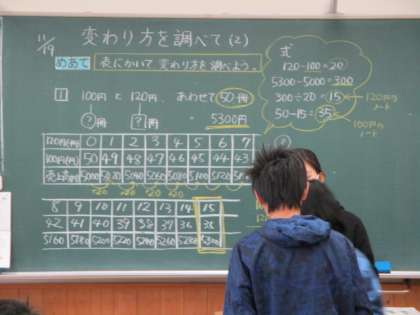 11/19
変わり方を調べて(2)
めあて 表にかいて変わり方を調べよう。
1 100円と120円、あわせて50冊
?冊 ?冊 5300円
式
120-100=20
5300-5000=300
300÷20=15 120円ノート
50-15=35 100円ノート
120円(冊) 0 1 2 3 4 5 6 7
100円(冊) 50 49 48 47 46 45 44 43
5000 5020 5040 5060 5080 5100 5120
+20 +20 +20 +20
8 9 10 11 12 13 14 15
42 41 40 39 38 37 36 35
5160 5180 5200 5220 5240 5260 5280 5300